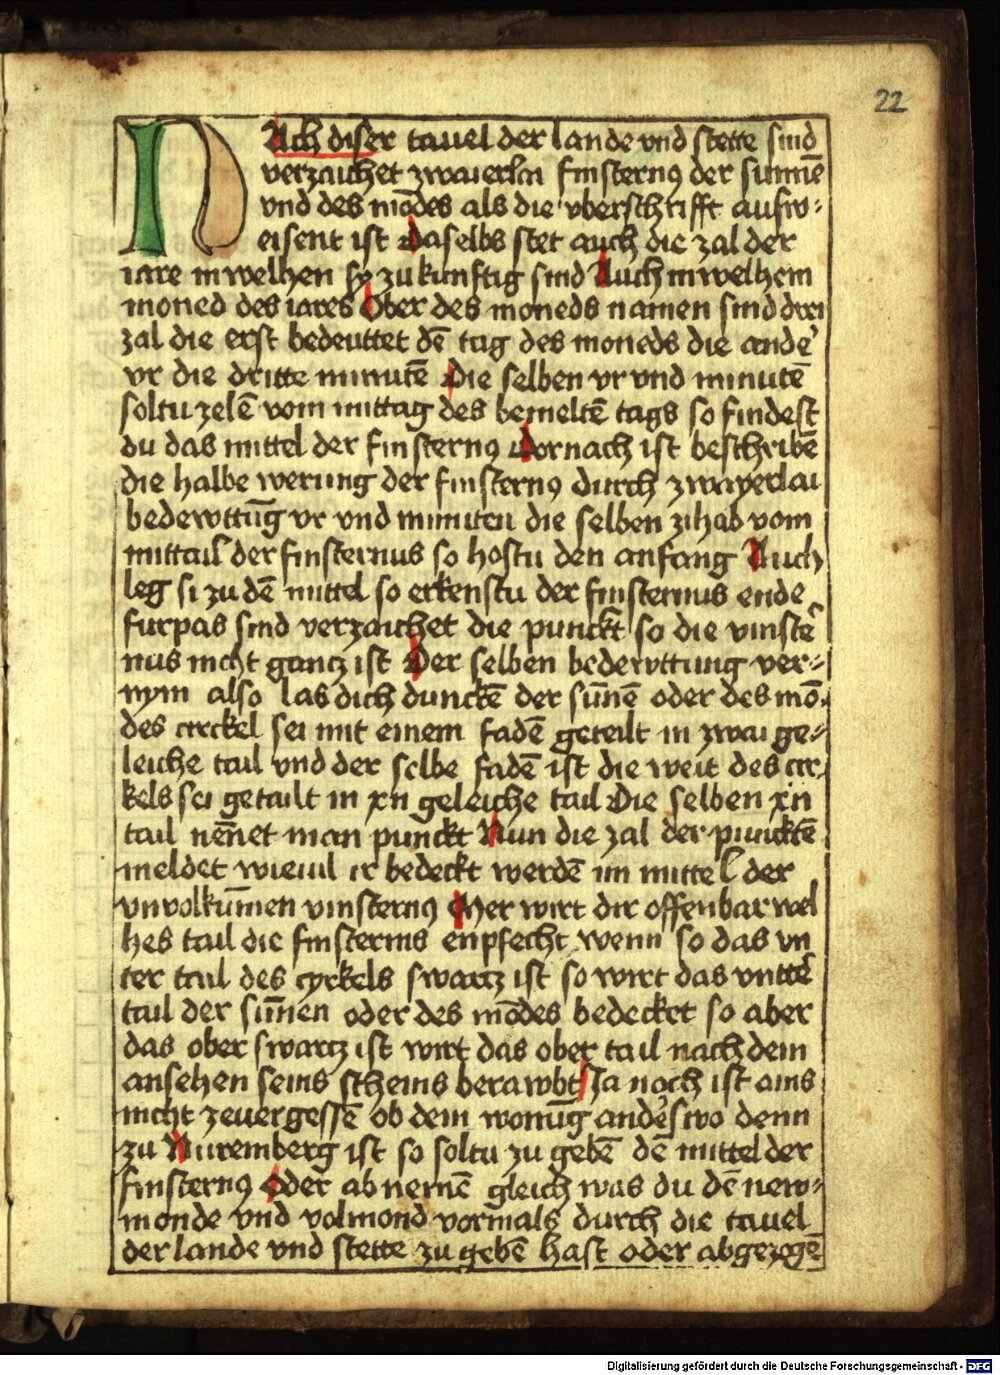 22
NAch diser tauel der lande vnd stette sind
verzaichet zwaierlai finsternꝰ der sunnē
vnd des mōdes als die vberschrifft aufw⸗
eisent ist Daselbs stet auch die zal der
iare in welhen sy zukunftig sind Auch in welhem
moned des iares Ober des moneds namen sind drei
zal die erst bedeuttet dē tag des moneds die ander
vr die dritte minutē Die selben vr vnd minutē
soltu zelē vom mittag des bemeltē tags so findest
du das mittel der finsternꝰ Dornach ist beschribē
die halbe werung der finsternꝰ durch zwayerlai
bedewttūg vr vnd minuten die selben zihab vom
mittail der finsternus so hostu den anfang Auch
leg si zu dē mittel so erkenstu der finsternus ende
furpas sind verzaichet die punckt so die vinster
nus nicht gantz ist Der selben bedewttung ver⸗
nym also las dich dunckē der sūnē oder des mō⸗
des circkel sei mit einem fadē geteilt in zwai ge⸗
leiche tail vnd der selbe fadē ist die weit des cir⸗
kels sei getailt in xii geleiche tail Die selben xii
tail nēnet man punckt Nun die zal der punctē
meldet wieuil ir bedeckt werdē im mittel der
vnvolkūmen vinsternꝰ Mer wirt dir offenbar wel
hes tail die finsternis enpfecht wenn so das vn
ter tail des cyrkels swartz ist so wirt das vntter
tail der sūnen oder des mōdes bedeckt so aber
das ober swartz ist wirt das ober tail nach dem
ansehen seins scheins berawbt Ja noch ist ains
nicht zeuergessē ob dem wonūg anderswo denn
zu Nuremberg ist so soltu zu gebē dē mittel der
finsternꝰ Oder ab nemē gleich was du dē new⸗
monde vnd volmond vormals durch die tauel
der lande vnd stette zu gebē hast oder abgezogē
Digitalisierung gefördert durch die Deutsche Forschungsgemeinschaft - DFG